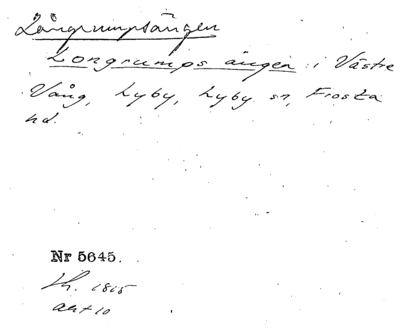 Långrumpsängen
Longrumps ängen i Västre
Vång, Lyby, Lyby sn, Frosta
hd.
Nr 5645.
Lh. 1815
akt 10